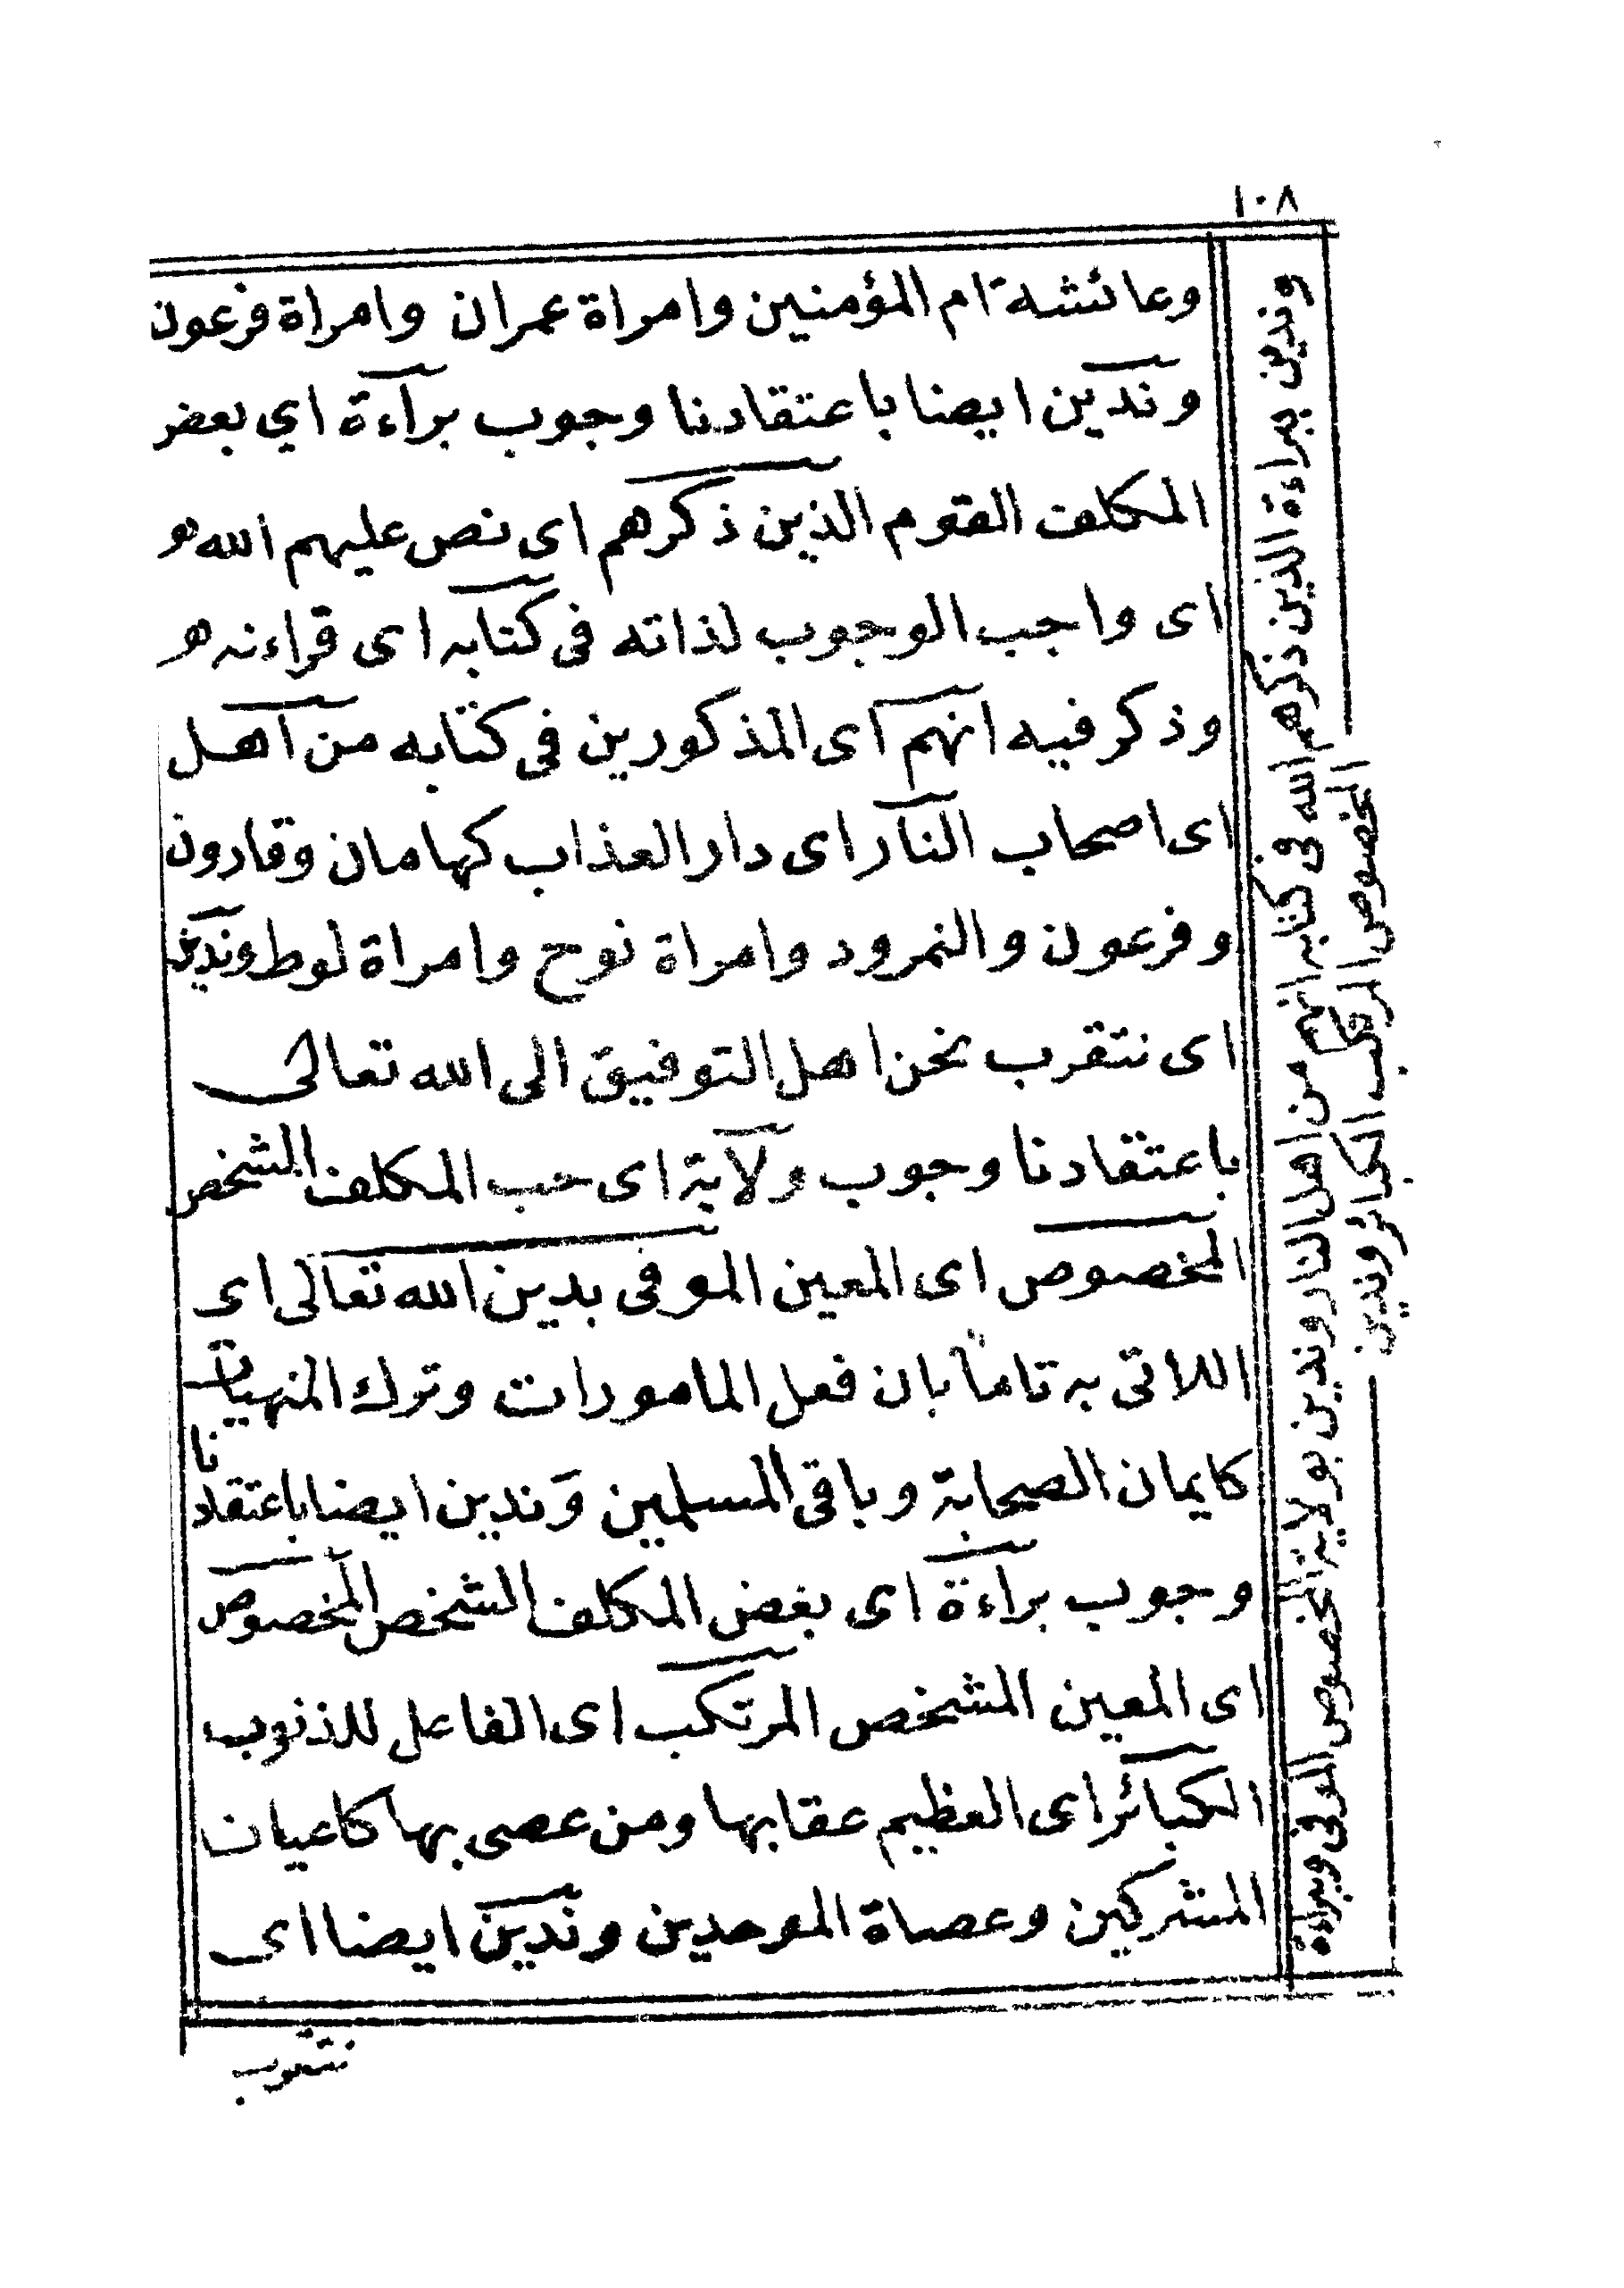 ١٠٨
وعائشة ام المؤمنين وامراة عمران وامراة فرعون
وندين ايضا باعتقادنا وجوب براءة اي بعض
المكلف القوم الذين ذكرهم اى نص عليهم الله هو
اى واجب الوجوب لذاته فى كتابه اى قراءنه هو
وذكر فيه انهم اى المذكورين فى كتابه من اهل
اى اصحاب النار اى دار العذاب كهامان وقارون
وفرعون والنمرود وامراة نوح وامراة لوط وندين
اى نتقرب نحن اهل التوفيق الى الله تعالى
باعتقادنا وجوب ولاية اى حب المكلف الشخص
المخصوص اى المعين الموفى بدين الله تعالى اى
اللاتى به تاما بان فعل المامورات وترك المنهيات
كايمان الصحابة وباقى المسلمين وندين ايضا باعتقادنا
وجوب براءة اى بغض المكلف الشخص المخصوص
اى المعين المشخص المرتكب اى الفاعل للذنوب
الكبائر اى العظيم عقابها ومن عصى بها كاعيان
المشركين وعصاة الموحدين وندين ايضا اى
نتقرب
وندين ببراءة الذين ذكرهم الله فى كتابه انهم من اهل النار وندين بولاية المخصوص الموفى وببراءة
المخصوص المرتكب الكبائر وندين